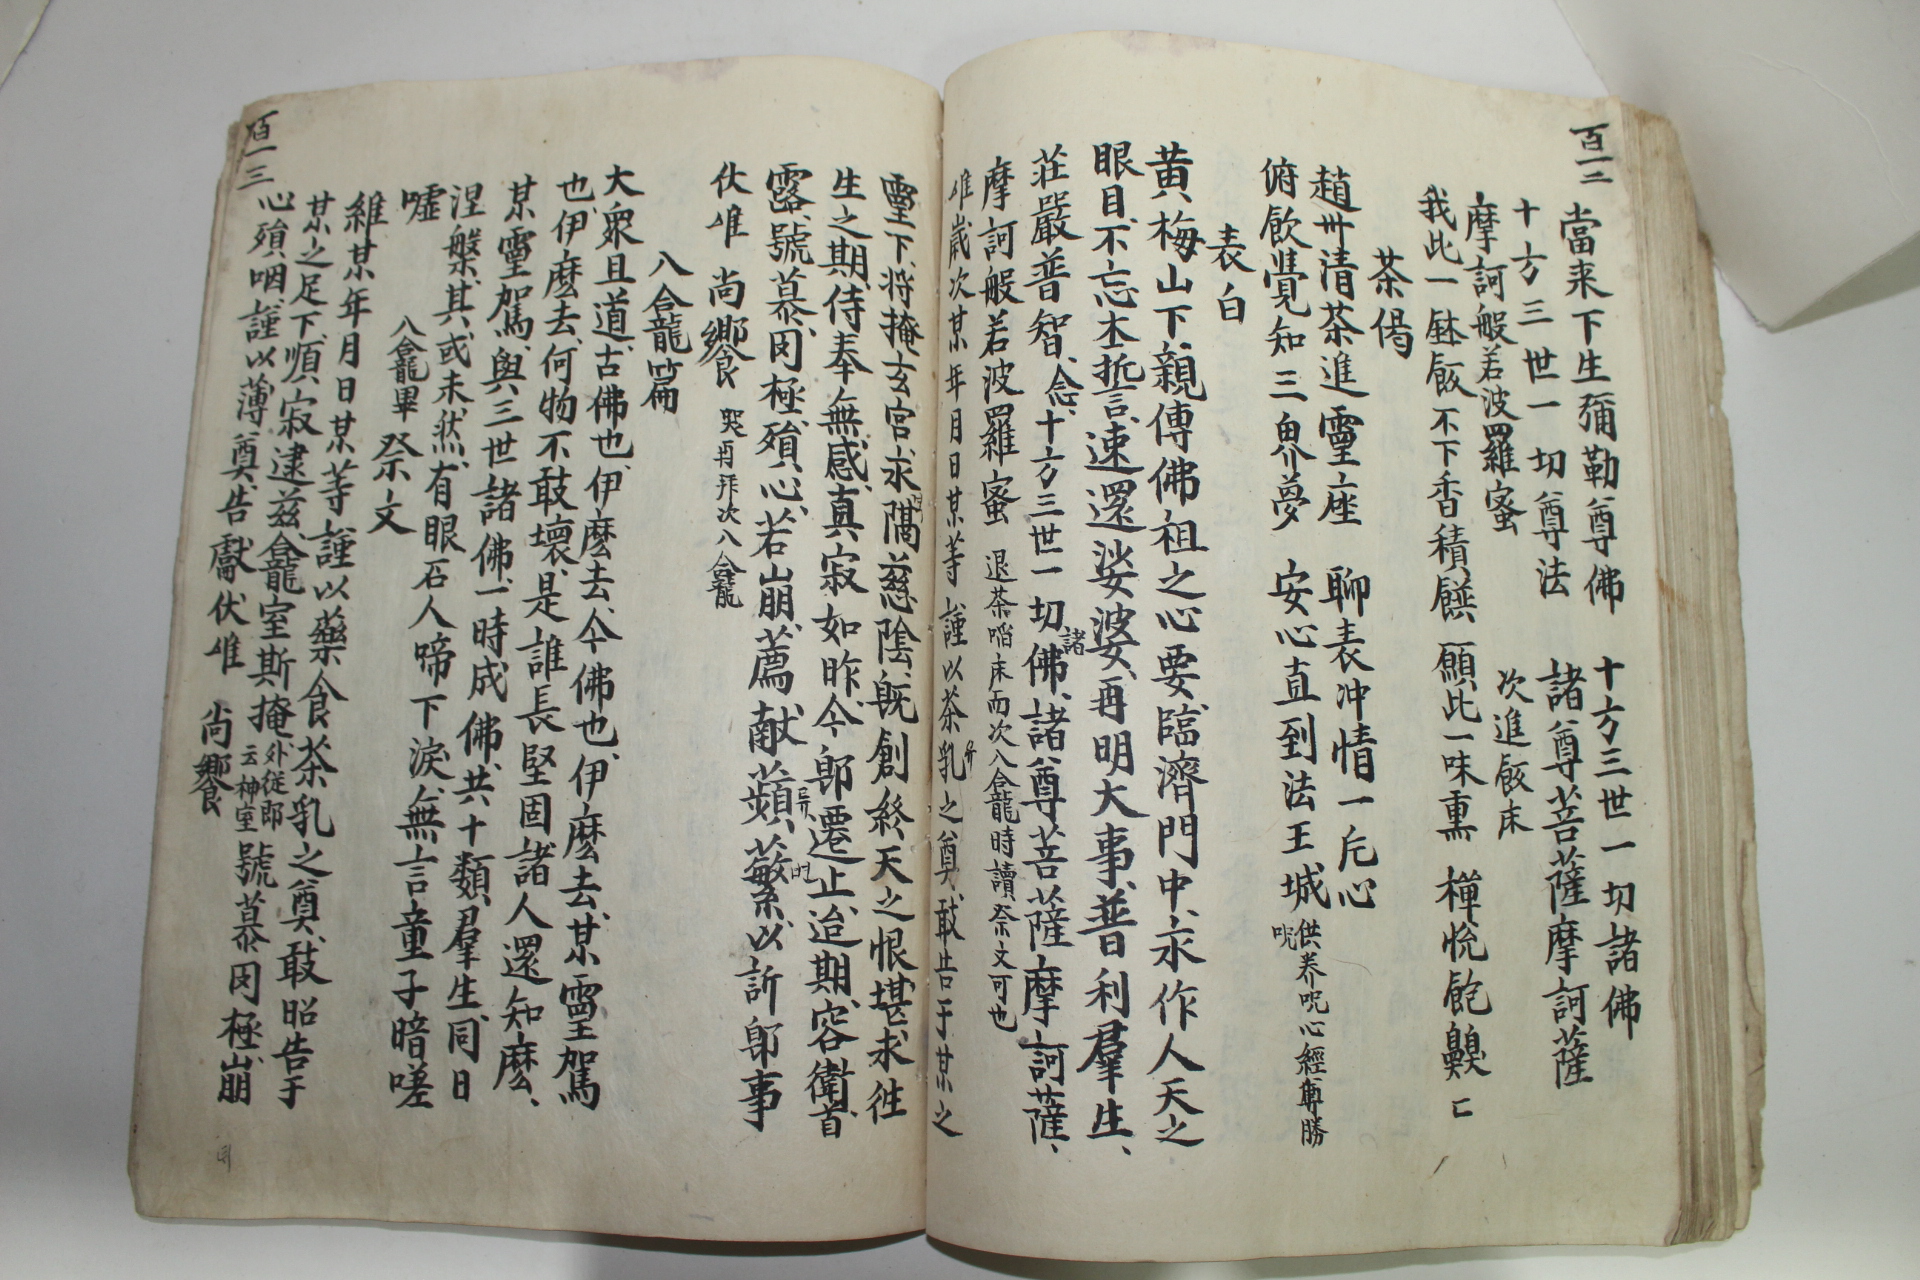 百一二
當来下生彌勒尊佛 十方三世一切諸佛
十方三世一切尊法 諸尊菩薩摩訶薩
摩訶般若波羅蜜 次進飯床
我此一鉢飯 不下香積饌 願此一味熏 禪悅飽
茶偈
趙州清茶進靈座 聊表冲情一片心
俯飲覺知三界夢 安心直到法王城 供养呪心經
表白
黄梅山下、親傳佛祖之心要、臨濟門中、永作人天之
眼目、不忘本誓、速還娑婆、再明大事、普利羣生、
莊嚴普智、念、十方三世一切諸佛、諸尊菩薩摩訶薩、
摩訶般若波羅蜜 退茶床而次入龕時讀祭文可也
維歲次某年月日某等 謹以茶乳之奠、敢告于某之
靈下、將掩玄宮、永隔慈陰、旣創終天之恨、堪永徃
生之期、侍奉無感、真寂如昨、今卽遷止、迨期、容衛、首
露、號慕罔極、殞心、若崩、薦献蘋蘩、以訴卽事
伏惟 尚饗 哭再拜次入龕
入龕篇
大衆且道、古佛也、伊麽去、今佛也、伊麽去、某靈駕
也、伊麽去、何物不敢壞、是誰長堅固、諸人還知麽、
某靈駕與三世諸佛、一時成佛、共十類、羣生、同日
涅槃、其或未然、有眼石人啼下淚、無言童子暗嗟
噓 入龕畢 祭文
維某年月日某等 謹以藥食茶乳之奠、敢昭告于
某之足下、順寂逮茲、龕室斯掩、外徒即云神室 號慕罔極、崩
心殞咽、謹以薄奠、告獻、伏惟 尚饗
百一三